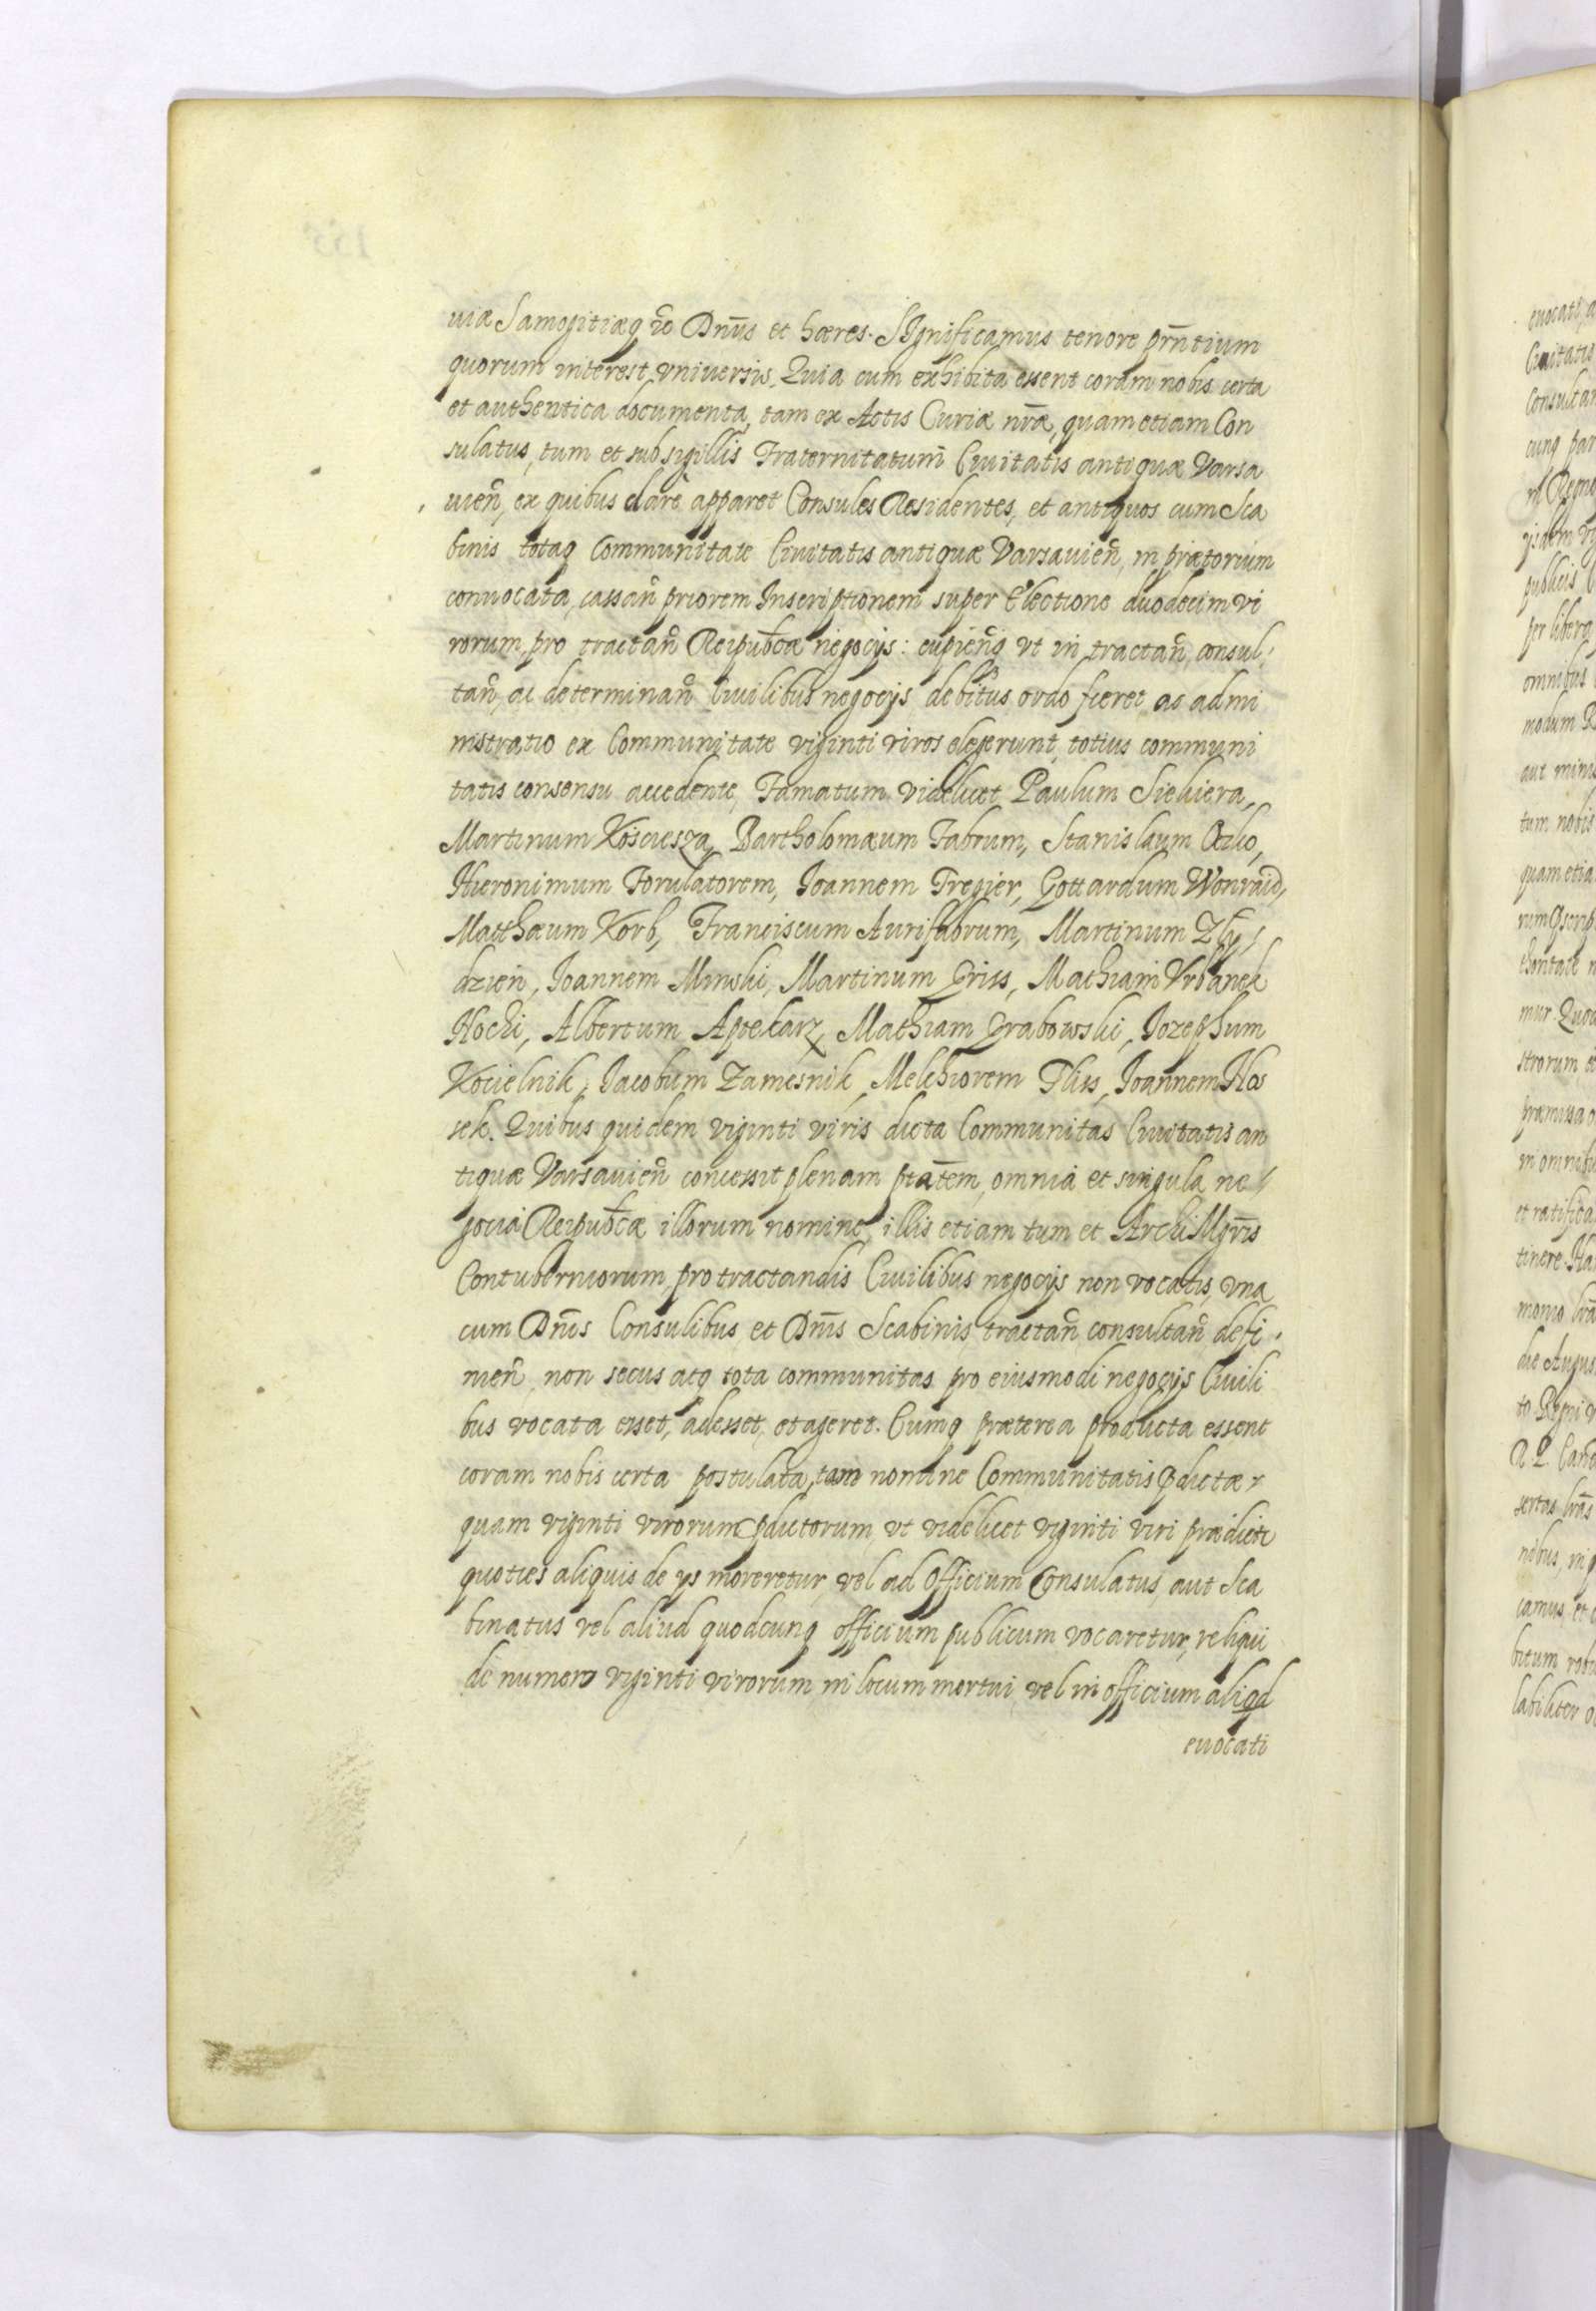 uiæ Samogitiæq₃ Dnūs et hæres. SIgnificamus tenore prn̄tium
quorum interest vniuersis. Quia cum exhibita essent coram nobis certa
et authentica documenta, tam ex Actis Curiæ nr̄æ, quam etiam Con
sulatus, tum et sub sigillis Fraternitatum Ciuitatis antiquæ Varsa
uień, ex quibus clarè apparet Consules Residentes, et antiquos cum Sca
binis totaq₃ Communitate Ciuitatis antiquæ Varsauień, in prætorium
conuocata, cassań priorem Inscriptionem super Electione duodecim vi
rorum, pro tractań Reipub̄cæ negocijs: cupienq₃ vt in tractań, consul,
tań, ac determinań Ciuilibus negocijs debitus ordo fieret ac admi
nistratio ex Communitate viginti viros elegerunt, totius communi
tatis consensu accedente, Famatum videlicet Paulum Siekiera,
Martinum Kosciesza, Bartholomæum Fabrum, Stanislaum
Hieronimum Torulatorem, Joannem Tregier, Gottardum Wonraid,
Matthæum Korb, Franciscum Aurifabrum, Martinum Zły/
dzien, Joannem Minski, Martinum Griss, Mathiam Vrbanek
Hocki, Albertum Aptekarz, Mathiam Grabowski, Jozephum
Kocielnik, Jacobum Zamesnik, Melchiorem Pliss, Joannem Hos
sek. Quibus quidem viginti viris dicta Communitas Ciuitatis an
tiquæ Varsauień concessit plenam ptātem, omnia et singula ne/
gocia Reipub̄cæ illorum nomine, illis etiam tum et ArchiMgr̄is
Contuberniorum, pro tractandis Ciuilibus negocijs non vocatis, vna
cum Dn̄is Consulibus et Dn̄is Scabinis, tractań, consultań, defi,
nień, non secus atq₃ tota communitas pro eiusmodi negocijs Ciuili
bus vocata esset, adesset, et ageret. Cumq₃ præterea producta essent
coram nobis certa postulata, tam nomine Communitatis p̄dictæ
quam viginti virorum p̄dictorum, vt videlicet viginti viri prædicti
quoties aliquis de ijs moreretur, vel ad Officium Consulatus, aut Sca
binatus vel aliud quodcunq₃ officium publicum vocaretur, reliqui
de numero viginti virorum in locum mortui, vel in officium aliqd
euocati